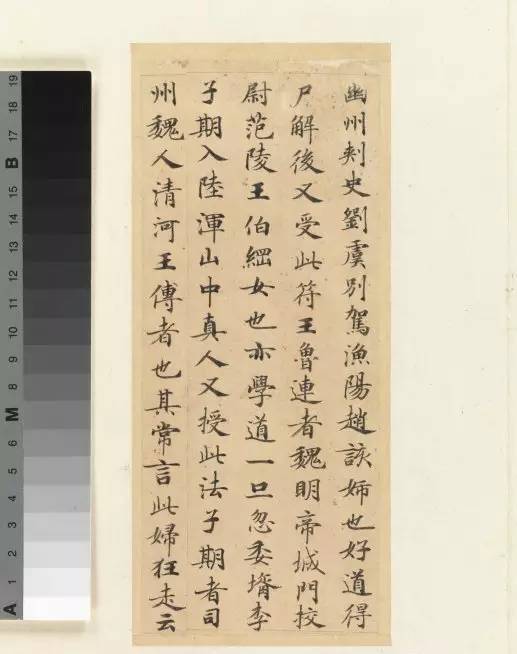 幽州刾史劉虞別駕漁陽趙該婦也好道得
尸解後又受此符王魯連者魏明帝城門挍
尉范陵王伯綱女也亦學道一旦忽委壻李
子期入陸渾山中真人又授此法子期者司
州魏人清河王傅者也其常言此婦狂走云
A 1 2 3 4 5 6 M 8 9 10 11 12 13 14 15 B 17 18 19